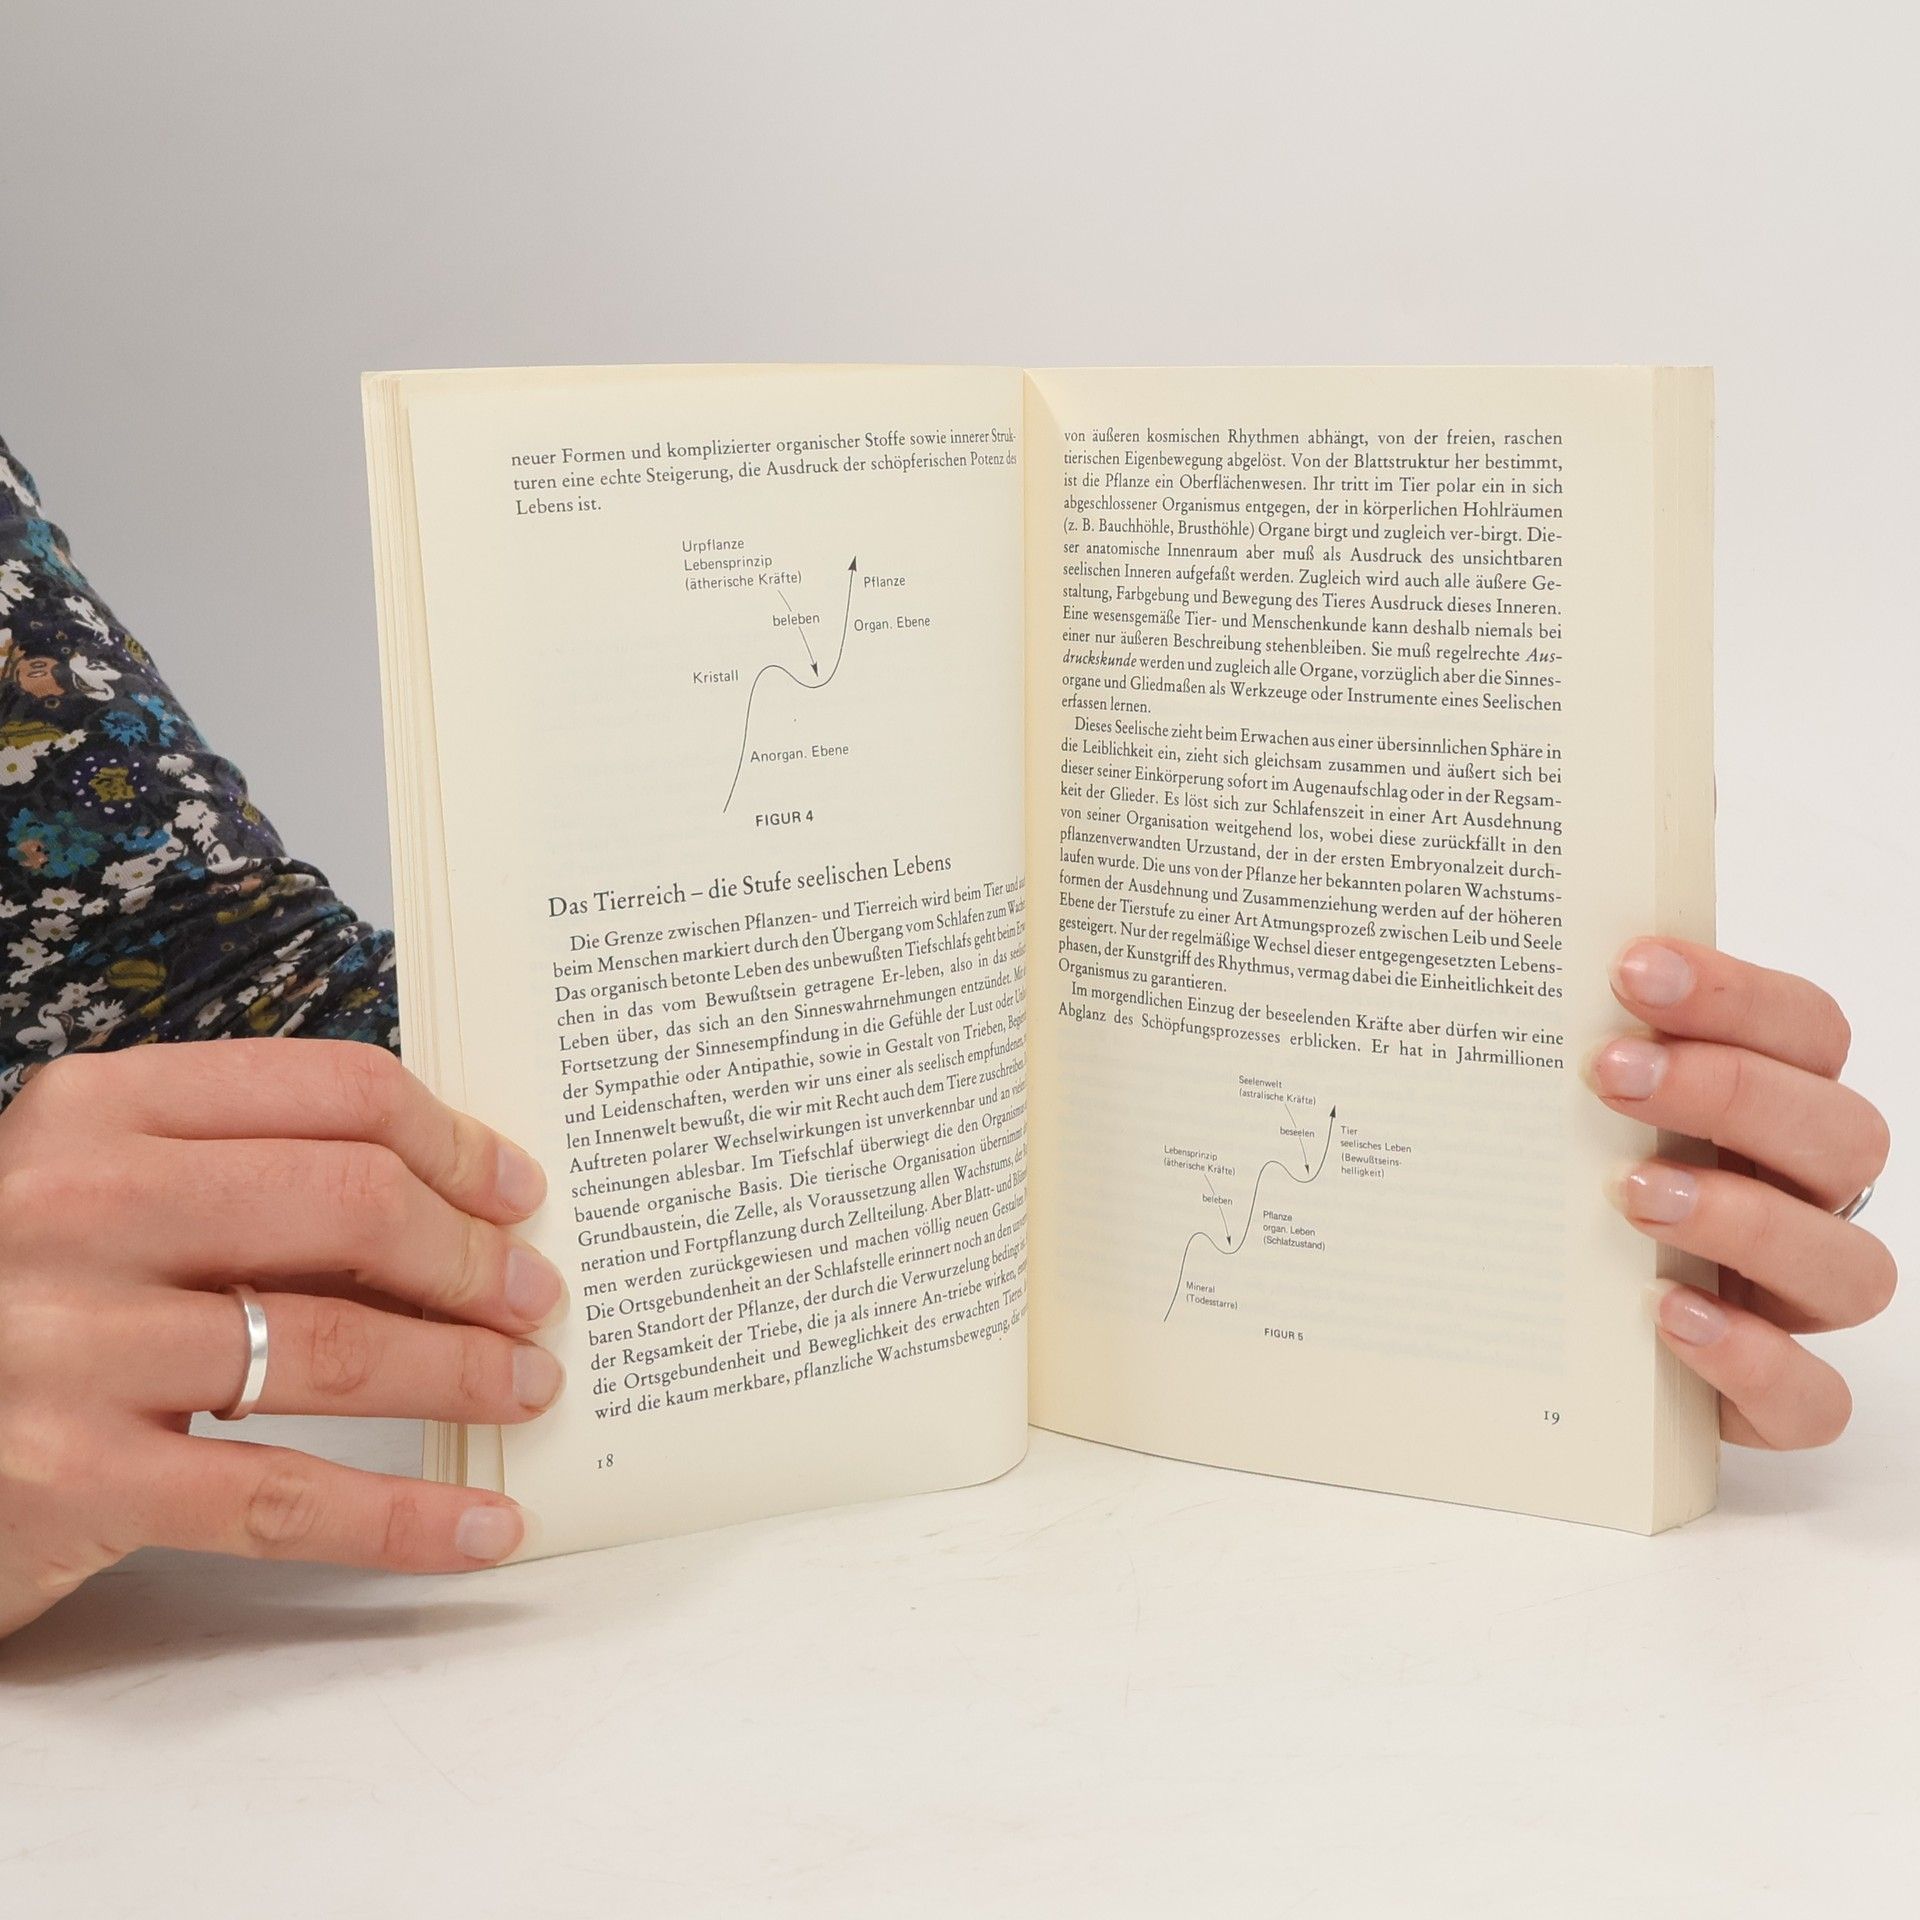 neuer Formen und komplizierter organischer Stoffe sowie innerer Struk-
turen eine echte Steigerung, die Ausdruck der schöpferischen Potenz des
Lebens ist.
Urpflanze
Lebensprinzip
(ätherische Kräfte)
Pflanze
beleben
Organ. Ebene
Kristall
Anorgan. Ebene
FIGUR 4
Das Tierreich – die Stufe seelischen Lebens
Die Grenze zwischen Pflanzen- und Tierreich wird beim Tier und
beim Menschen markiert durch den Übergang vom Schlafen zum
Das organisch betonte Leben des unbewußten Tiefschlafs geht beim
chen in das vom Bewußtsein getragene Er-leben, also in das
Leben über, das sich an den Sinneswahrnehmungen entzündet.
Fortsetzung der Sinnesempfindung in die Gefühle der Lust oder
der Sympathie oder Antipathie, sowie in Gestalt von Trieben,
und Leidenschaften, werden wir uns einer als seelisch empfundenen,
len Innenwelt bewußt, die wir mit Recht auch dem Tiere zuschreiben.
Auftreten polarer Wechselwirkungen ist unverkennbar und an
scheinungen ablesbar. Im Tiefschlaf überwiegt die den Organismus
bauende organische Basis. Die tierische Organisation übernimmt
Grundbaustein, die Zelle, als Voraussetzung allen Wachstums, der
neration und Fortpflanzung durch Zellteilung. Aber Blatt- und
men werden zurückgewiesen und machen völlig neuen Gestalten
Die Ortsgebundenheit an der Schlafstelle erinnert noch an den
baren Standort der Pflanze, der durch die Verwurzelung bedingt
der Regsamkeit der Triebe, die ja als innere An-triebe wirken,
die Ortsgebundenheit und Beweglichkeit des erwachten Tieres.
wird die kaum merkbare, pflanzliche Wachstumsbewegung, die
18
von äußeren kosmischen Rhythmen abhängt, von der freien, raschen
tierischen Eigenbewegung abgelöst. Von der Blattstruktur her bestimmt,
ist die Pflanze ein Oberflächenwesen. Ihr tritt im Tier polar ein in sich
abgeschlossener Organismus entgegen, der in körperlichen Hohlräumen
(z. B. Bauchhöhle, Brusthöhle) Organe birgt und zugleich ver-birgt. Die-
ser anatomische Innenraum aber muß als Ausdruck des unsichtbaren
seelischen Inneren aufgefaßt werden. Zugleich wird auch alle äußere Ge-
staltung, Farbgebung und Bewegung des Tieres Ausdruck dieses Inneren.
Eine wesensgemäße Tier- und Menschenkunde kann deshalb niemals bei
einer nur äußeren Beschreibung stehenbleiben. Sie muß regelrechte Aus-
druckskunde werden und zugleich alle Organe, vorzüglich aber die Sinnes-
organe und Gliedmaßen als Werkzeuge oder Instrumente eines Seelischen
erfassen lernen.
Dieses Seelische zieht beim Erwachen aus einer übersinnlichen Sphäre in
die Leiblichkeit ein, zieht sich gleichsam zusammen und äußert sich bei
dieser seiner Einkörperung sofort im Augenaufschlag oder in der Regsam-
keit der Glieder. Es löst sich zur Schlafenszeit in einer Art Ausdehnung
von seiner Organisation weitgehend los, wobei diese zurückfällt in den
pflanzenverwandten Urzustand, der in der ersten Embryonalzeit durch-
laufen wurde. Die uns von der Pflanze her bekannten polaren Wachstums-
formen der Ausdehnung und Zusammenziehung werden auf der höheren
Ebene der Tierstufe zu einer Art Atmungsprozeß zwischen Leib und Seele
gesteigert. Nur der regelmäßige Wechsel dieser entgegengesetzten Lebens-
phasen, der Kunstgriff des Rhythmus, vermag dabei die Einheitlichkeit des
Organismus zu garantieren.
Im morgendlichen Einzug der beseelenden Kräfte aber dürfen wir eine
Abglanz des Schöpfungsprozesses erblicken. Er hat in Jahrmillionen
Seelenwelt
(astralische Kräfte)
beseelen
Tier
seelisches Leben
(Bewußtseins-
helligkeit)
Lebensprinzip
(ätherische Kräfte)
beleben
Pflanze
organ. Leben
(Schlafzustand)
Mineral
(Todesstarre)
FIGUR 5
19